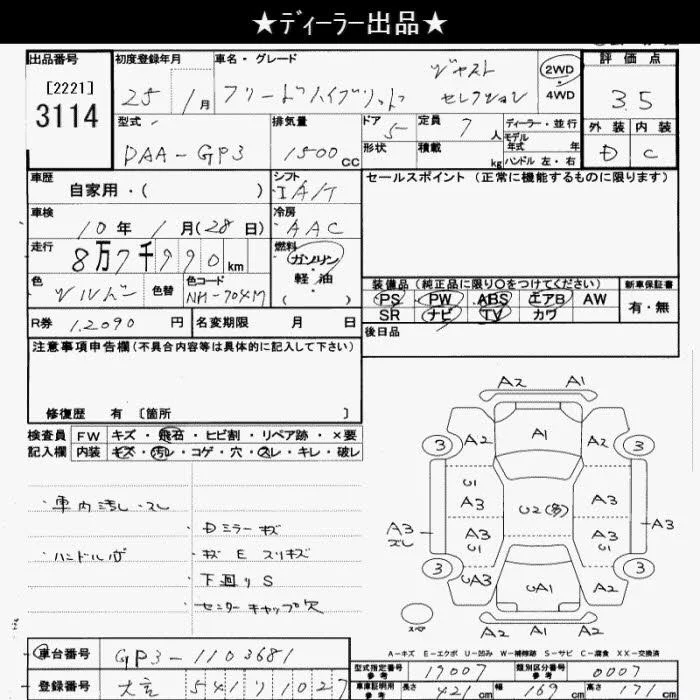 ★ディーラー出品★
出品番号
[2221]
3114
初度登録年月
25年 1月
車名・グレード
フリードハイブリッド
ジャスト
セレクション
2WD
4WD
評価点
3.5
外装 内装
D C
型式
DAA-GP3
排気量
1500cc
ドア
5
形状
定員
7人
積載
kg
ディーラー・並行
モデル
年式 年
ハンドル 左・右
車歴
自家用・( )
シフト
IA/T
車検
10年 1月(28日)
冷房
AAC
走行
8万7千990km
燃料
ガソリン
・
軽油
( )
色
シルバー
色替
色コード
NH-704M
R券
12090円
名変期限 月 日
セールスポイント (正常に機能するものに限ります)
装備品 (純正品に限り○をつけてください)
PS PW ABS エアB AW
SR ナビ TV カワ
新車保証書
有・無
後日品
注意事項申告欄(不具合内容等は具体的に記入して下さい)
修復歴 有 〔箇所 〕
検査員
記入欄
FW キズ・飛石・ヒビ割・リペア跡・×要
内装 キズ・汚レ・コゲ・穴・スレ・キレ・破レ
・車内汚れ・スレ
・ハンドルガ
・Dミラーキズ
・キズ E スリキズ
・下廻りS
・センターキャップ欠
A2 A1
3 A2 A1 A2 3
U1
A3 U2(多) A3
A3
スレ
A3
U1
A3
U1
A3
3 UA3 UA1 A2 3
スペア
A2 A1 A2
A-キズ E-エクボ U-凹み W-補修跡 S-サビ C-腐食 XX-交換済
車台番号
GP3-1103681
登録番号
大宮 541 リ 1027
型式指定番号
参考
19007
類別区分番号
参考
0007
車庫証明用
参考
長さ 421cm
幅 169cm
高さ 171cm